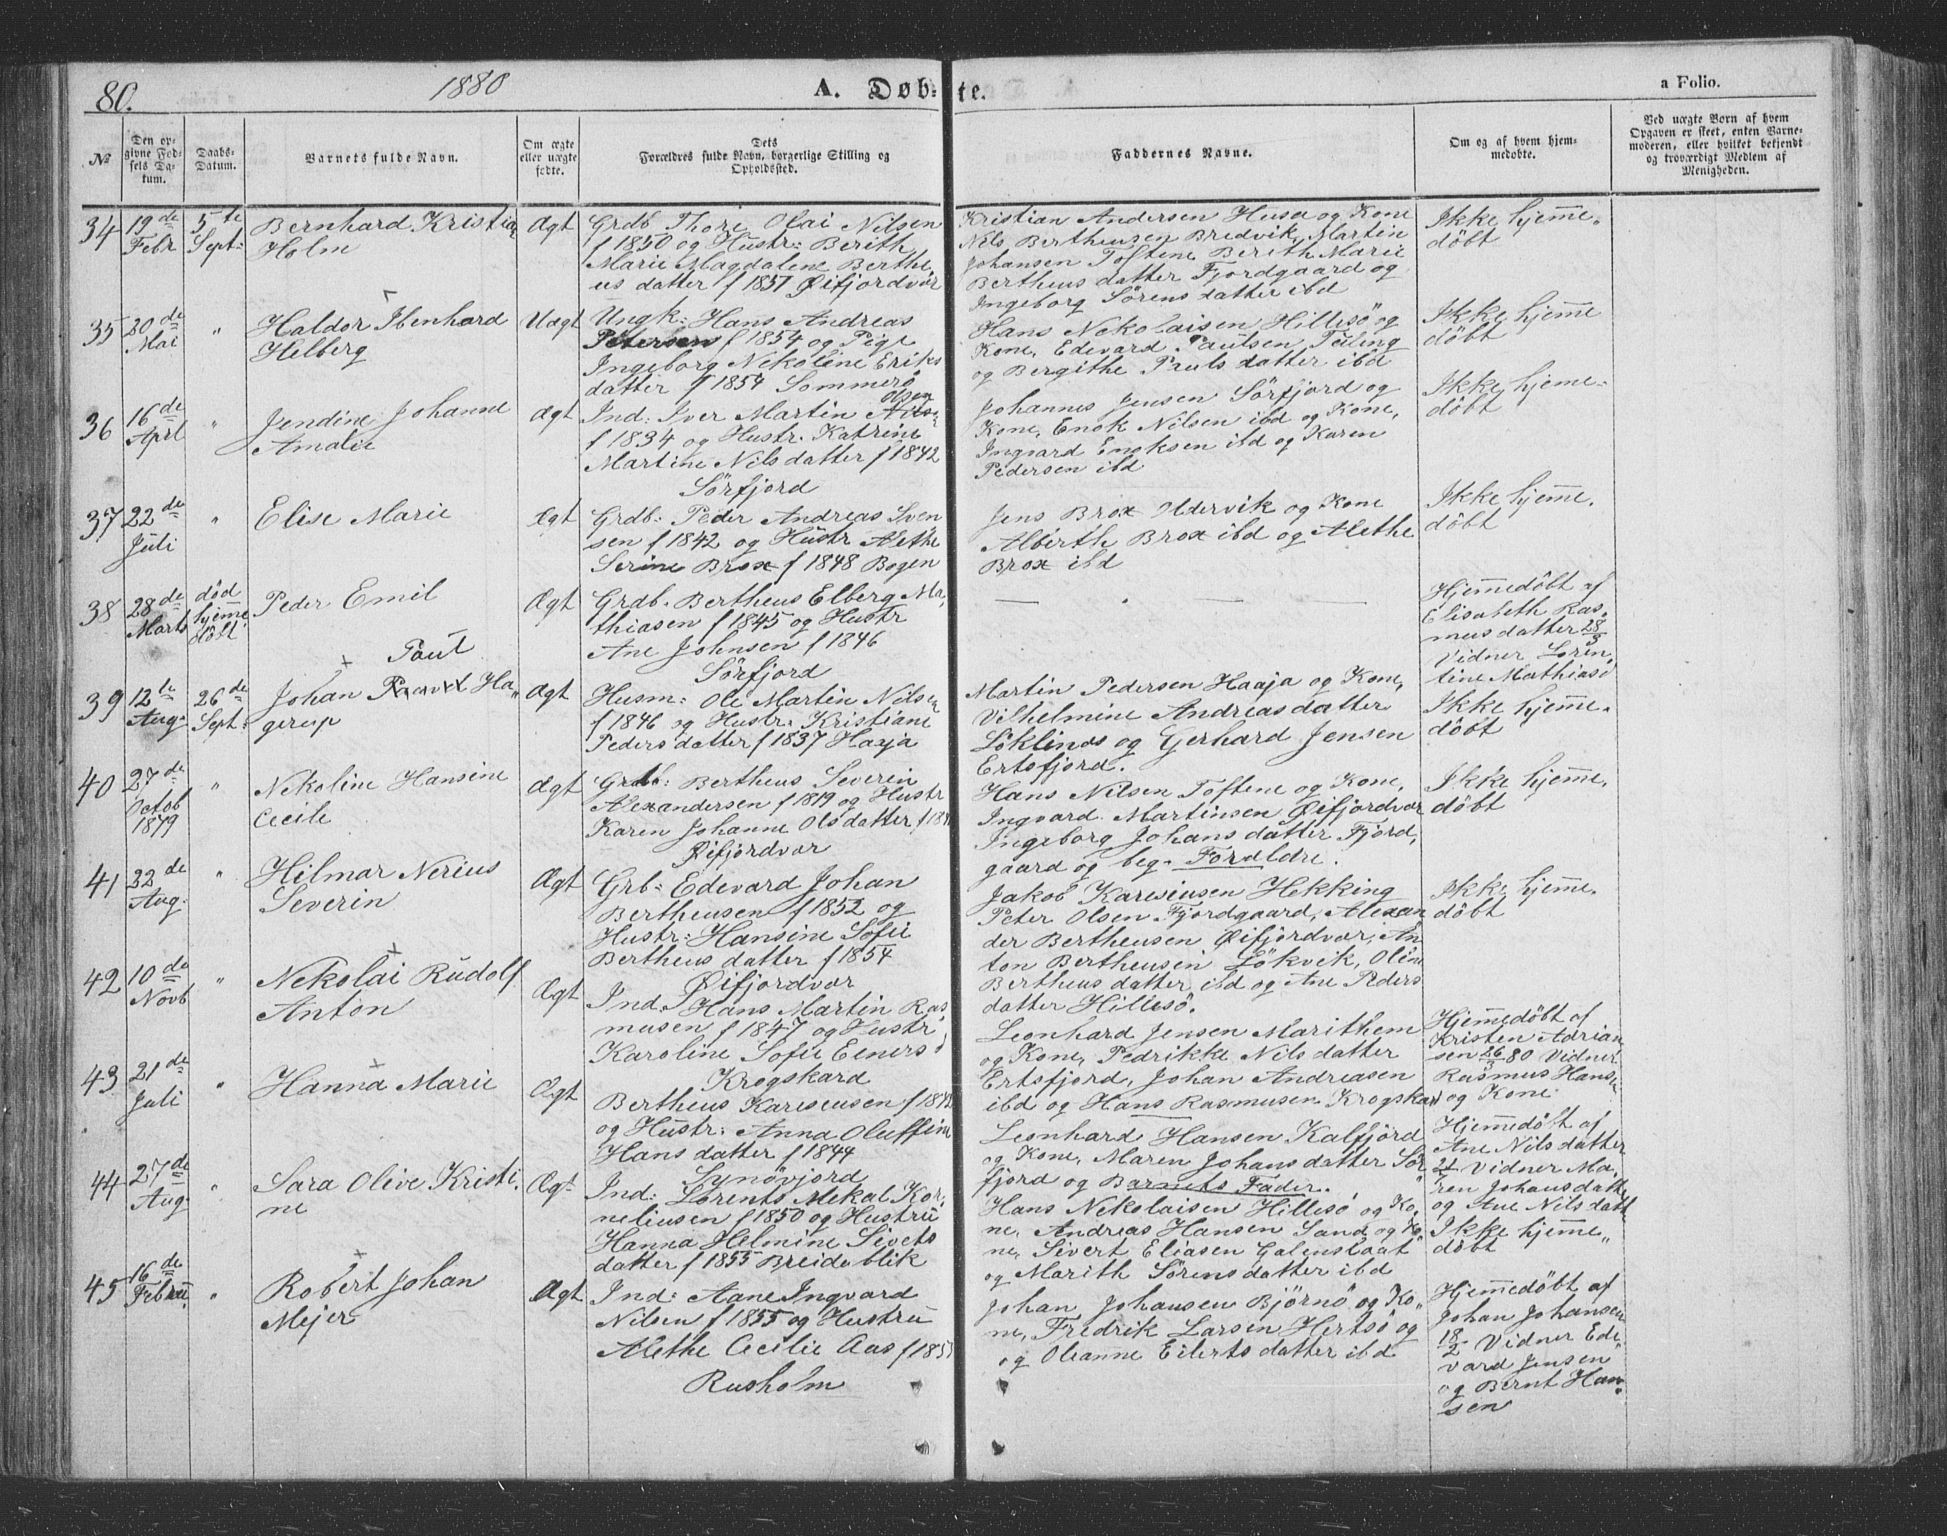 80.
1880
A. Døb-
te.
a Folio.
№
Den op-
givne Fød-
sels Da-
tum.
Daabs-
Datum.
Barnets fulde Navn.
Om ægte
eller uægte
fødte.
Dets
Forældres fulde Navn, borgerlige Stilling og
Opholdssted.
Faddernes Navne.
Om og af hvem hjem-
medøbte.
Ved uægte Børn af hvem
Opgaven er skeet, enten Barne-
moderen, eller hvilket bekjendt
og troværdigt Medlem af
Menigheden.
34
19de
Febr
5te
Sept:
Bernhard Kristian
Holm
Ægt
Grdb Thore Olai Nilsen
f 1850 og Hustr: Berith
Marie Magdalene Berthe,
us datter f 1857 Øifjordvær
Kristian Andersen Husa og Kone
Nils Bertheusen Bredvik, Martin
Johansen Toftene Berith Marie
Bertheus datter Fjordgaard og
Ingeborg Sörens datter ibd
Ikke hjemme-
döbt
35
20de
Mai
"
Haldor Ibenhard
Helberg
Uægt
Ungk: Hans Andreas
Petersen f 1854 og Pige
Ingeborg Nekoline Eriks
datter f 1854 Sommerö
Hans Nekolaisen Hillesö og
Kone, Edevard Paulsen
og Bergithe Pauls datter ibd
Ikke hjemme
döbt
36
16de
Aprl
"
Jendine Johanne
Amalie
Ægt
Olsen
Ind: Iver Martin
f 1834 og Hustr. Katrine
Martine Nils datter f 1842
Sörfjord
Johannes Jensen Sörfjord og
Kone, Enok Nilsen ibd og Kone,
Ingvard Enoksen ibd og Karen
Pedersen ibd
Ikke hjemme-
döbt
37
22de
Juli
"
Elise Marie
Ægt
Grdb: Peder Andreas Sven
sen f 1842 og Hustr Alethe
Serine Brox f 1848 Bogen
Jens Brox Oldervik og Kone
Alberth Brox ibd og Alethe
Brox ibd
Ikke hjemme.
döbt
38
28de
Marts
död
hjemme
döbt
Peder Emil
Ægt
Grdb. Bertheus Elberg Ma,
thiasen f 1845 og Hustr
Ane Johnsen f 1846
Sörfjord
Hjemmedöbt af
Elisabeth Ras,
mus datter 28/3
Vidner Loren,
tine Mathiasd
39
12te
Aug.
26de
Sept:
Paul
Johan Ha„
gerup
Ægt
Husm: Ole Martin Nilsen
f 1846 og Hustr: Kristiane
Peders datter f 1837 Haaja
Martin Pedersen Haaja og Kone,
Vilhelmine Andreas datter
Löklines og Gerhard Jensen
Ertsfjord.
Ikke hjemme.
döbt
40
27de
Octob
1879
"
Nekoline Hansine
Cecile
Ægt
Grdb: Bertheus Severin
Alexandersen f 1819 og Hustr
Karen Johanne Ols datter f
Øifjordvær
Hans Nilsen Toftene og Kone,
Ingvard Martinsen Øifjordvær
Ingeborg Johans datter Fjord,
gaard og beg. Foreldre.
Ikke hjemme.
döbt
41
22de
Aug.
"
Hilmar Nerius
Severin
Ægt
Grb: Edevard Johan
Bertheusen f 1852 og
Hustr: Hansine Sofie
Bertheus datter f 1854
Øifjordvær
Jakob Karesiusen Hekking
Peter Olsen Fjordgaard, Alexan
der Bertheusen Øifjordvær, An
ton Bertheusen Lökvik, Oline
Bertheus datter ibd og Ane Peders
datter Hillesö.
Ikke hjemme.
döbt
42
10de
Novb
"
Nekolai Rudolf
Anton
Ægt
Ind. Hans Martin Ras
musen f 1847 og Hustr
Karoline Sofie Eenersd
Krogskard
Leonhard Jensen Marithem
og Kone, Pedrikke Nils datter
Ertsfjord, Johan Andreasen
ibd og Hans Rasmusen Krogskard
Hjemmedöbt af
Kristen Adrian
sen 26/ 80 Vidner
Rasmus Hansen
og Kone
43
21de
Juli
"
Hanna Marie
Ægt
Bertheus Karesiusen f 1842
og Hustr: Anna Oluffine
Hans datter f 1844
Synövjord
Leonhard Hansen Kalfjörd
og Kone, Maren Johans datter Sör
fjord og Barnets Fader.
Hjemmedöbt af
Ane Nils datter
21/ Vidner Ma,
ren Johans datter
og Ane Nils datt
44
27de
Aug
"
Sara Olive Kristi,
ne
Ægt
Ind: Lorents Mekal Kor,
neliusen f 1850 og Hustru
Hanna Helmine Siverts
datter f 1855 Breideblik
Hans Nekolaisen Hillesö og Ko,
ne, Andreas Hansen Sand og Ko
ne, Sivert Eliasen Galenslaat
og Marith Sörens datter ibd
Ikke hjemme„
döbt
45
16de
Febru.
"
Robert Johan
Mejer
Ægt
Ind: Aane Ingvard
Nilsen f 1855 og Hustru
Alethe Cecilie Aas f 1855
Rusholm
Johan Johansen Björnö og Ko„
ne, Fredrik Larsen Hertsö og
og Oleanne Eilerts datter ibd
Hjemmedöbt af
Johan Johansen
18/2 Vidner Ede„
vard Jensen
og Bernt Han„
sen